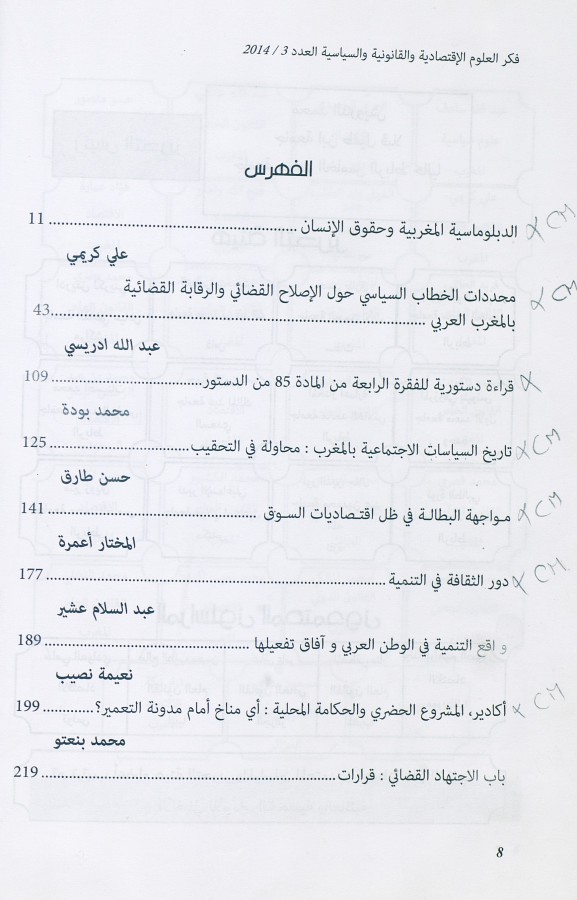 فكر العلوم الإقتصادية والقانونية والسياسية العدد 3 / 2014
الفهرس
الدبلوماسية المغربية وحقوق الإنسان ........................................ 11 CM
علي كريمي
محددات الخطاب السياسي حول الإصلاح القضائي والرقابة القضائية CM
بالمغرب العربي ........................................43
عبد الله ادريسي
قراءة دستورية للفقرة الرابعة من المادة 85 من الدستور........................ 109
محمد بودة
تاريخ السياسات الاجتماعية بالمغرب : محاولة في التحقيب ................ 125 CM
حسن طارق
مـواجهة البطالـة في ظل اقتـصاديات السـوق ........................ 141 CM
المختار أعمرة
دور الثقافة في التنمية ........................................ 177 CM
عبد السلام عشير
و اقع التنمية في الوطن العربي و آفاق تفعيلها ........................ 189
نعيمة نصيب
أكادير، المشروع الحضري والحكامة المحلية : أي مناخ أمام مدونة التعمير؟............ 199 CM
محمد بنعتو
باب الاجتهاد القضائي : قرارات........................................ 219
8